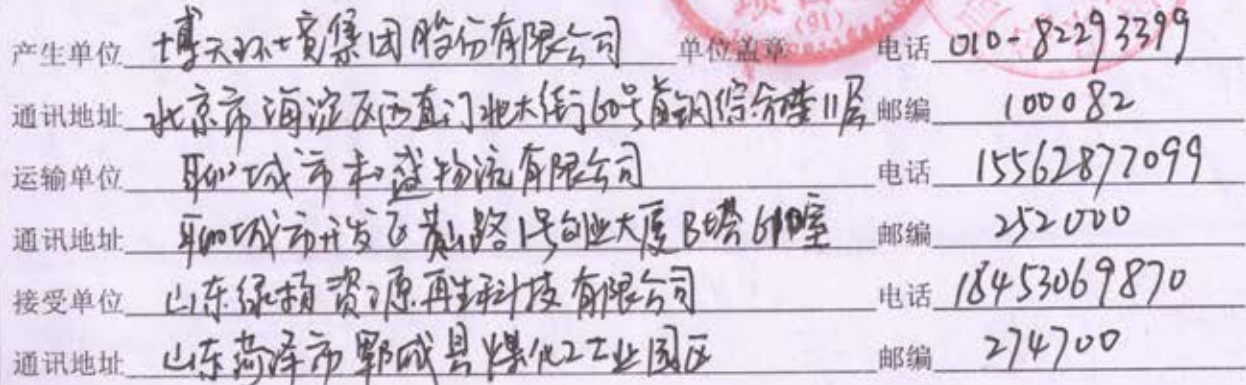 产生单位 博天环境集团股份有限公司 单位盖章 电话 010-82293399
通讯地址 北京市海淀区西直门北大街60号首钢综合楼11层 邮编 100082
运输单位 聊城市和盛物流有限公司 电话 15562877099
通讯地址 聊城市开发区黄山路1号创业大厦B塔610室 邮编 252000
接受单位 山东绿楠资源再生科技有限公司 电话 18453069870
通讯地址 山东菏泽市郓城县煤化工工业园区 邮编 274700
项目
(91)